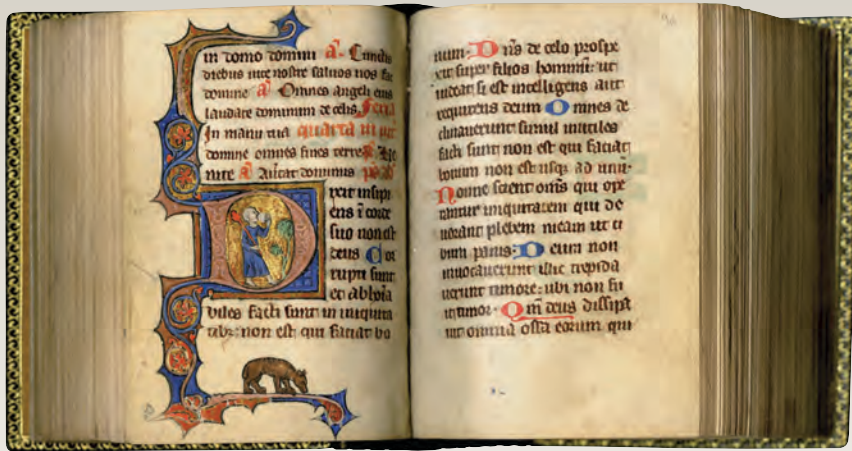 in domo domini a Cunctis
diebus uite nostre saluos nos fac
domine a Omnes angeli eius
laudate dominum de celis Feria
In manu tua quarta in
domine omnes fines terre Ve
nite a dominus
Dixit insipi
ens ĩ corde
suo non est
deus Cor
rupti sunt
et abhoĩa
biles facti sunt in iniquita
tibꝫ: non est qui faciat bo
num. Dñs de celo prospe
xit super filios hominũ: ut
uideat si est intelligens aut
requirens deum Omnes de
clinauerunt simul inutiles
facti sunt non est qui faciat
bonum non est usqꝫ ad unũ.
Nonne scient om̃s qui ope
rantur iniquitatem qui de
uorant plebem meam ut ci
bum panis: Deum non
inuocauerunt illic trepida
uerunt timore: ubi non fu
it timor. Qm̃ deus dissipa
uit omnia ossa eorum qui